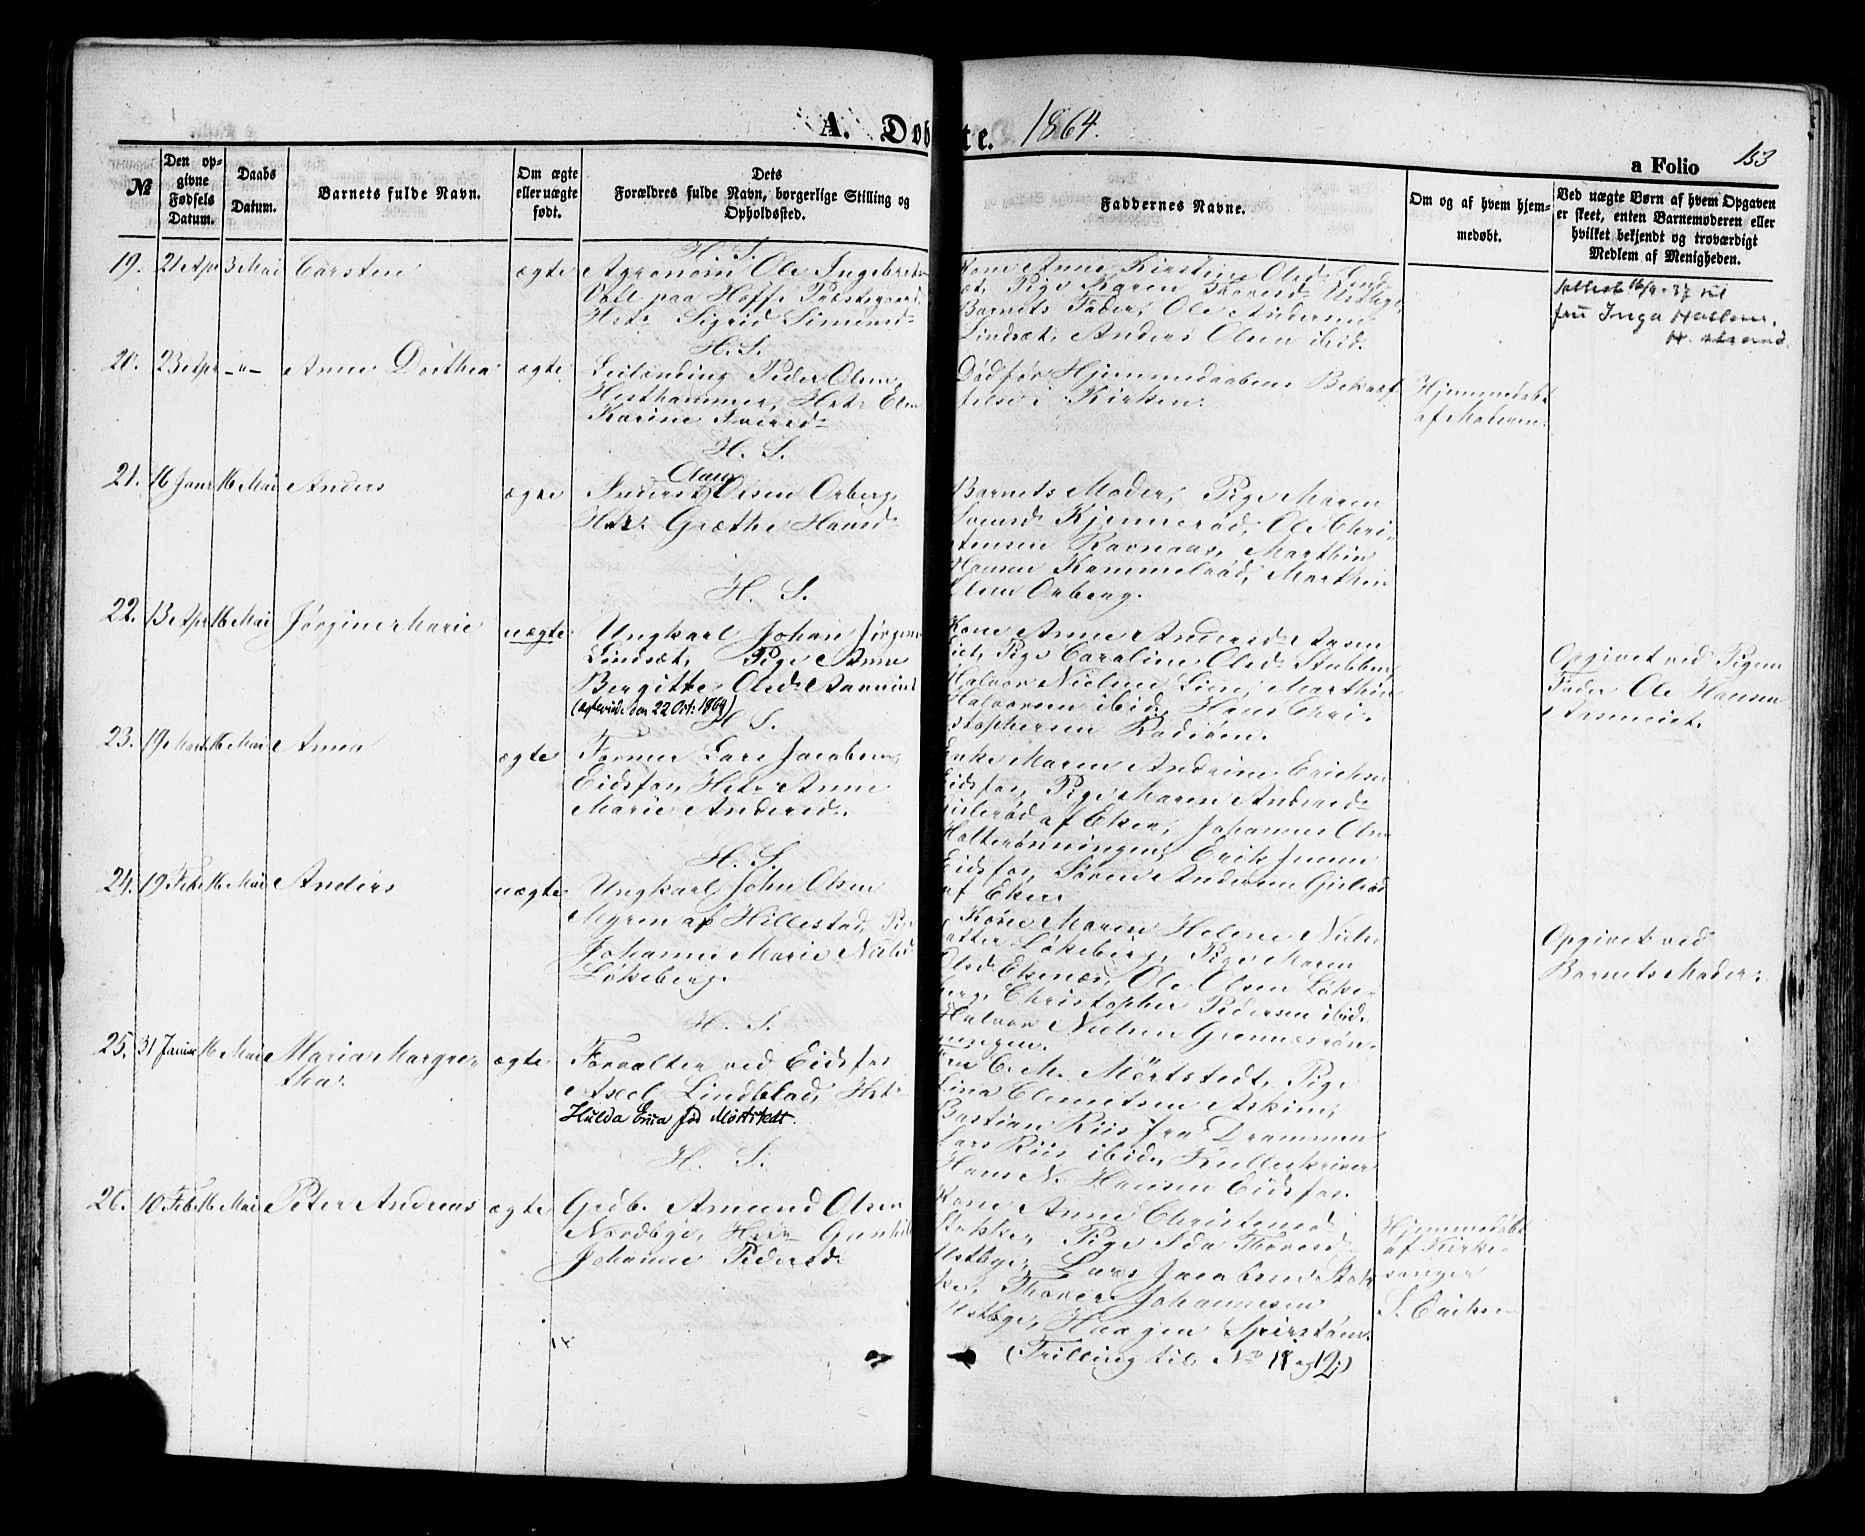 A. Døbte. 1864.
a Folio 153
№
Den op-
givne
Fødsels
Datum.
Daabs
Datum.
Barnets fulde Navn.
Om ægte
eller uægte
født.
Dets
Forældres fulde Navn, borgerlige Stilling og
Opholdssted.
Faddernes Navne.
Om og af hvem hjem-
medøbt.
Ved uægte Børn af hvem Opgaven
er skeet, enten Barnemoderen eller
hvilket bekjendt og troværdigt
Medlem af Menigheden.
H. S.
19. 21 Apr 3 Mai Carsten ægte
Agronom Ole Ingebretsen
Voll paa Hoffs Præstegaard
Hstr. Sigrid Simensd
Kone Anne Kirstine Olsd. Lind-
sæt, Pige Karen Thoresd. Ustbye,
Barnets Fader, Ole Andersen
Lindsæt, Anders Olsen ibid.
til
fru Inga
H. S.
20. 23 Apr -"- Anne Dorthea ægte
Leilænding Peder Olsen
Hesthammer, Hstr. Elen
Karine Iversd.
Død før Hjemmedaabens Bekræf-
telse i Kirken.
Hjemmedøbt
af Moderen.
H. S.
21. 16 Janr 16 Mai Anders ægte
Inderst Olsen Orberg,
Hstr. Grethe Hansd.
Barnets Moder, Pige Maren
Svensd. Kjennerød, Ole Chri-
stensen Ravnaas, Marthin
Hansen Kammelrød, Marthin
Olsen Orberg.
H. S.
22. 13 Apr 16 Mai Jørgine Marie uægte
Ungkarl Johan Jørgens
Lindsæt, Pige Anne
Bergitte Olsd.
(ægteviede den 22 Oct. 1864)
Kone Anne Andersd.
Pige Caroline Olsd. Stubben,
Halvor Nielsen Lien, Marthin
Halvorsen ibid, Hans Chri-
stophersen
Opgivet ved Pigens
Fader Ole Hansen
H. S.
23. 19 Marts 16 Mai Anna ægte
Former Lars Jacobsen
Eidsfos, Hstr. Anne
Marie Andersd.
Enke Maren Andrine Ericksen
Eidsfos, Pige Maren Andersd.
af Eker, Johannes Olsen
Holterønningen, Erik Jensen
Eidsfos, Søren Andersen
af Eker
H. S.
24. 19 Febr 16 Mai Anders uægte
Ungkarl John Olsen
Myren af Hillestad, Pige
Johanne Marie Nielsd
Løkeberg.
Kone Maren Helene Niels-
datter Løkeberg, Pige Maren
Olsd. Ekenæs, Ole Olsen Løke-
berg, Christopher Pedersen ibid.
Halvor Nielsen Grennesrøn-
ningen.
Opgivet ved
Barnets Moder.
H. S.
25. 31 Januar 16 Mai Maria Margre-
tha. ægte
Forvalter ved Eidsfos
Axel Lindblad, Hstr.
Hulda Erica fød Mörtstedt.
Fru C. M. Mörtstedt, Pige
Lina Clemetsen Askim,
Bastian Riis fra Drammen
Lars Riis ibid, Kulleskriver
Hans N. Hansen Eidsfos.
H. S.
26. 10 Feb 16 Mai Peter Andreas ægte
Grdb. Amund Olsen
Nordbye, Hstr. Gunhild
Johanne Pedersd.
Kone Anne Christensd
Stokke, Pige Ida Thoresd.
Ustbye, Lars Jacobsen Stok-
ke, Thore Johannesen
Ustbye, Haagen
(Trilling til No 11 og 12)
Hjemmedøbt
af Kirke-
sanger